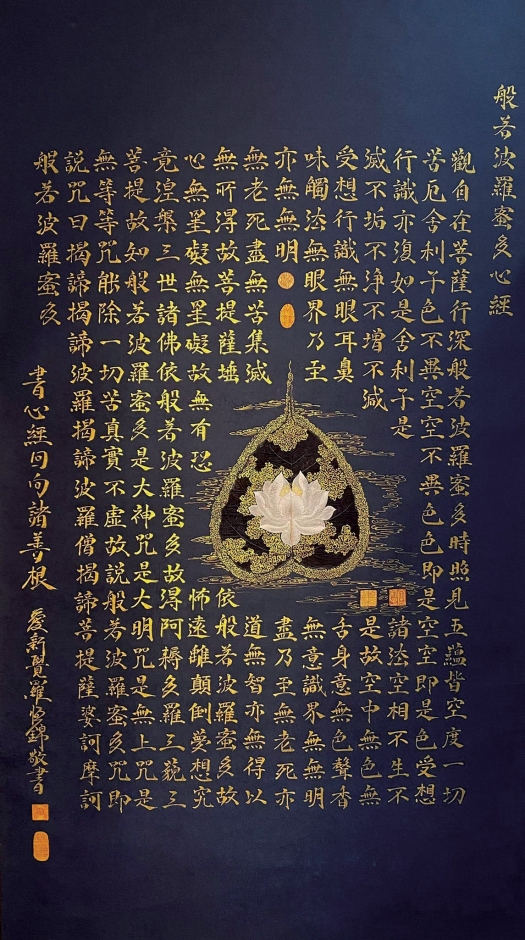 般若波羅蜜多心經
觀自在菩薩行深般若波羅蜜多時照見五蘊皆空度一切
苦厄舍利子色不異空空不異色色即是空空即是色受想
行識亦復如是舍利子是諸法空相不生不
滅不垢不淨不增不減是故空中無色無
受想行識無眼耳鼻舌身意無色聲香
味觸法無眼界乃至無意識界無無明
亦無無明盡乃至無老死亦
無老死盡無苦集滅道無智亦無得以
無所得故菩提薩埵依般若波羅蜜多故
心無罣礙無罣礙故無有恐怖遠離顛倒夢想究
竟涅槃三世諸佛依般若波羅蜜多故得阿耨多羅三藐三
菩提故知般若波羅蜜多是大神咒是大明咒是無上咒是
無等等咒能除一切苦真實不虛故說般若波羅蜜多咒即
說咒曰揭諦揭諦波羅揭諦波羅僧揭諦菩提薩婆訶摩訶
般若波羅蜜多
書心經回向諸善根 愛新覺羅錦敬書